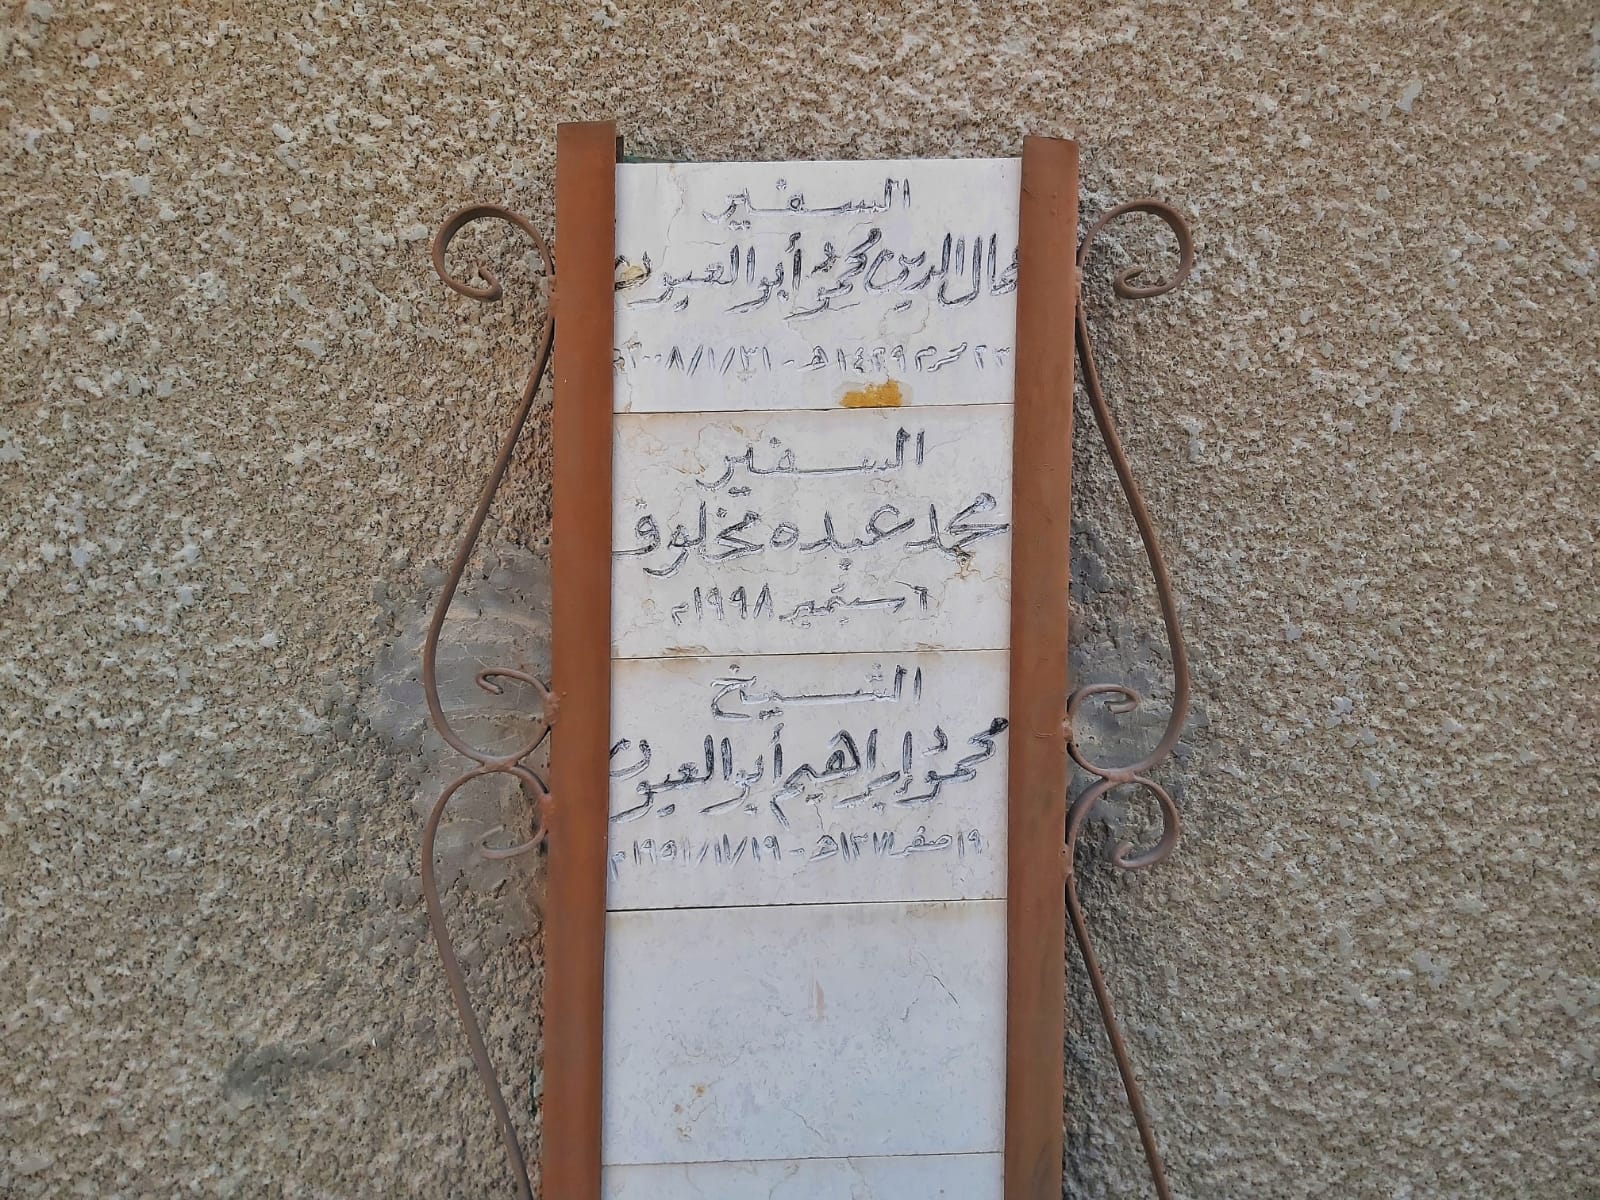 السفير
جمال الدين محمود أبو العيون
٢٣ محرم ١٤٢٩هـ - ٢٠٠٨/١/٣١م
السفير
محمد عبده مخلوف
٦ سبتمبر ١٩٩٨م
الشيخ
محمود إبراهيم أبو العيون
١٩ صفر ١٣٧١هـ - ١٩٥١/١١/١٩م